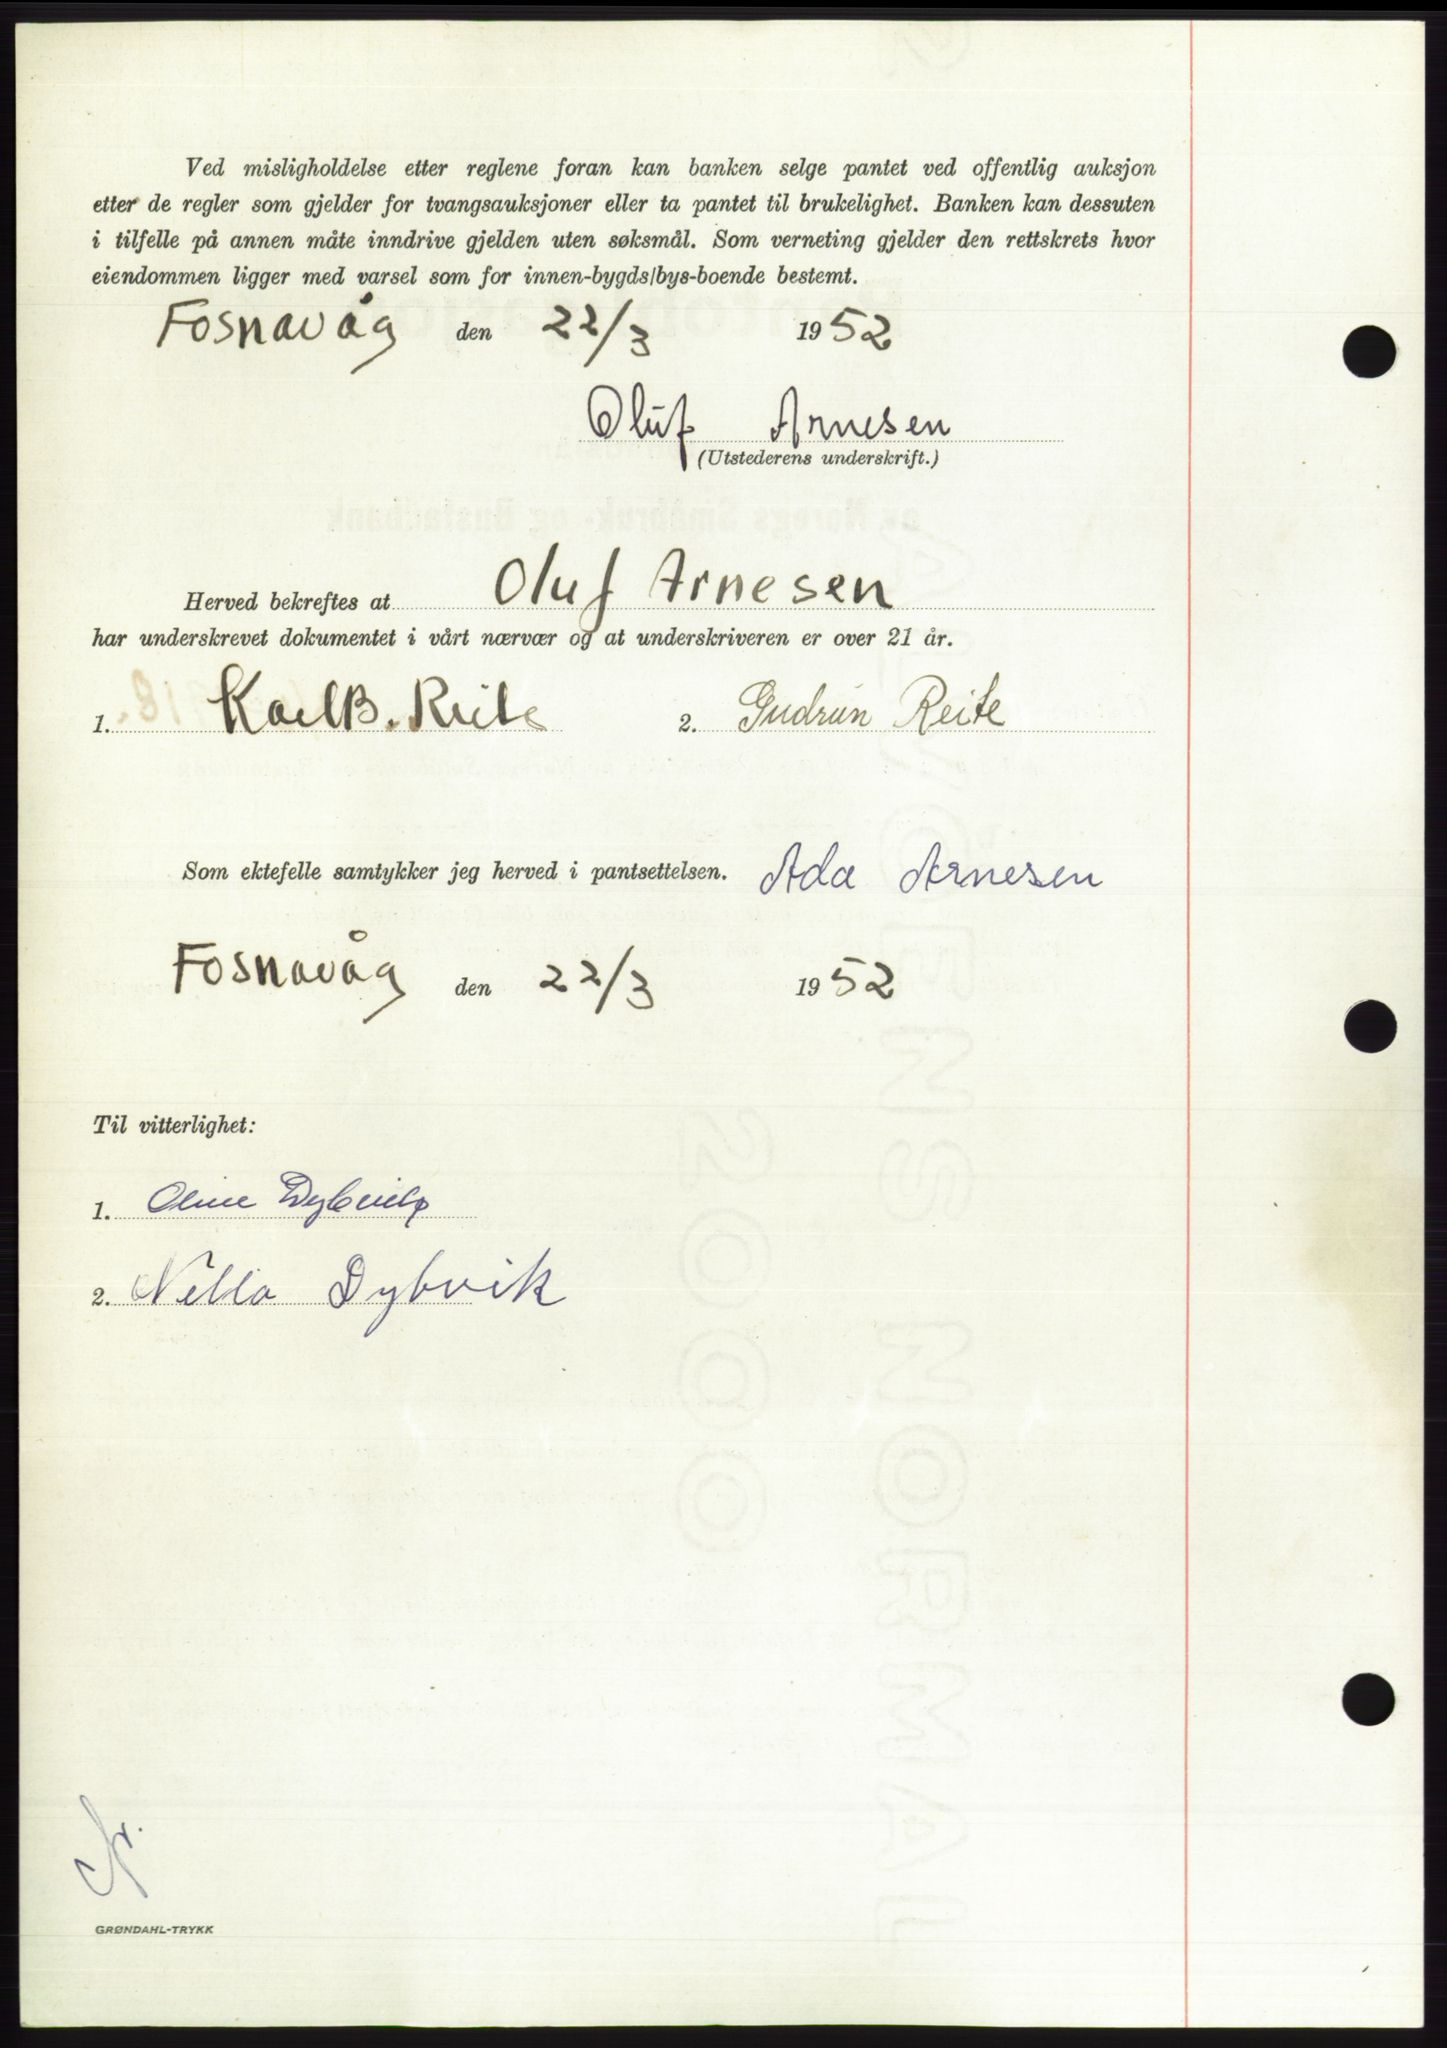 Ved misligholdelse etter reglene foran kan banken selge pantet ved offentlig auksjon
etter de regler som gjelder for tvangsauksjoner eller ta pantet til brukelighet. Banken kan dessuten
i tilfelle på annen måte inndrive gjelden uten søksmål. Som verneting gjelder den rettskrets hvor
eiendommen ligger med varsel som for innen-bygds/bys-boende bestemt.
Fosnavåg den 22/3 1952
Oluf Arnesen
(Utstederens underskrift.)
Herved bekreftes at Oluf Arnesen
har underskrevet dokumentet i vårt nærvær og at underskriveren er over 21 år.
1. Karl B. Reite 2. Gudrun Reite
Som ektefelle samtykker jeg herved i pantsettelsen. Ada Arnesen
Fosnavåg den 22/3 1952
Til vitterlighet:
1. Oline Dybvik
2. Nella Dybvik
GRØNDAHL-TRYKK